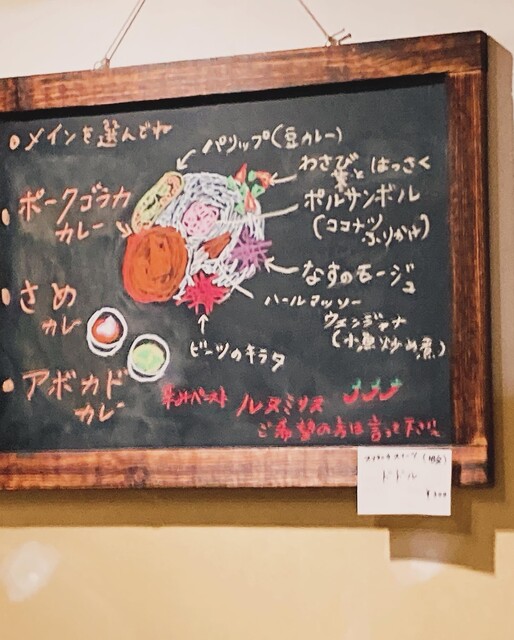 ・メインを選んでね
・ポークゴラカ
カレー
・さめ
カレー
・アボカド
カレー
パリップ(豆カレー)
わさび
葉とはっさく
ポルサンボル
(ココナツ
ふりかけ)
なすのモージュ
ハールマッソー
ウェンジャナ
(小魚炒め煮)
ビーツのキラタ
辛みペースト ルヌミリス
ご希望の方は言って下さい
ドドル